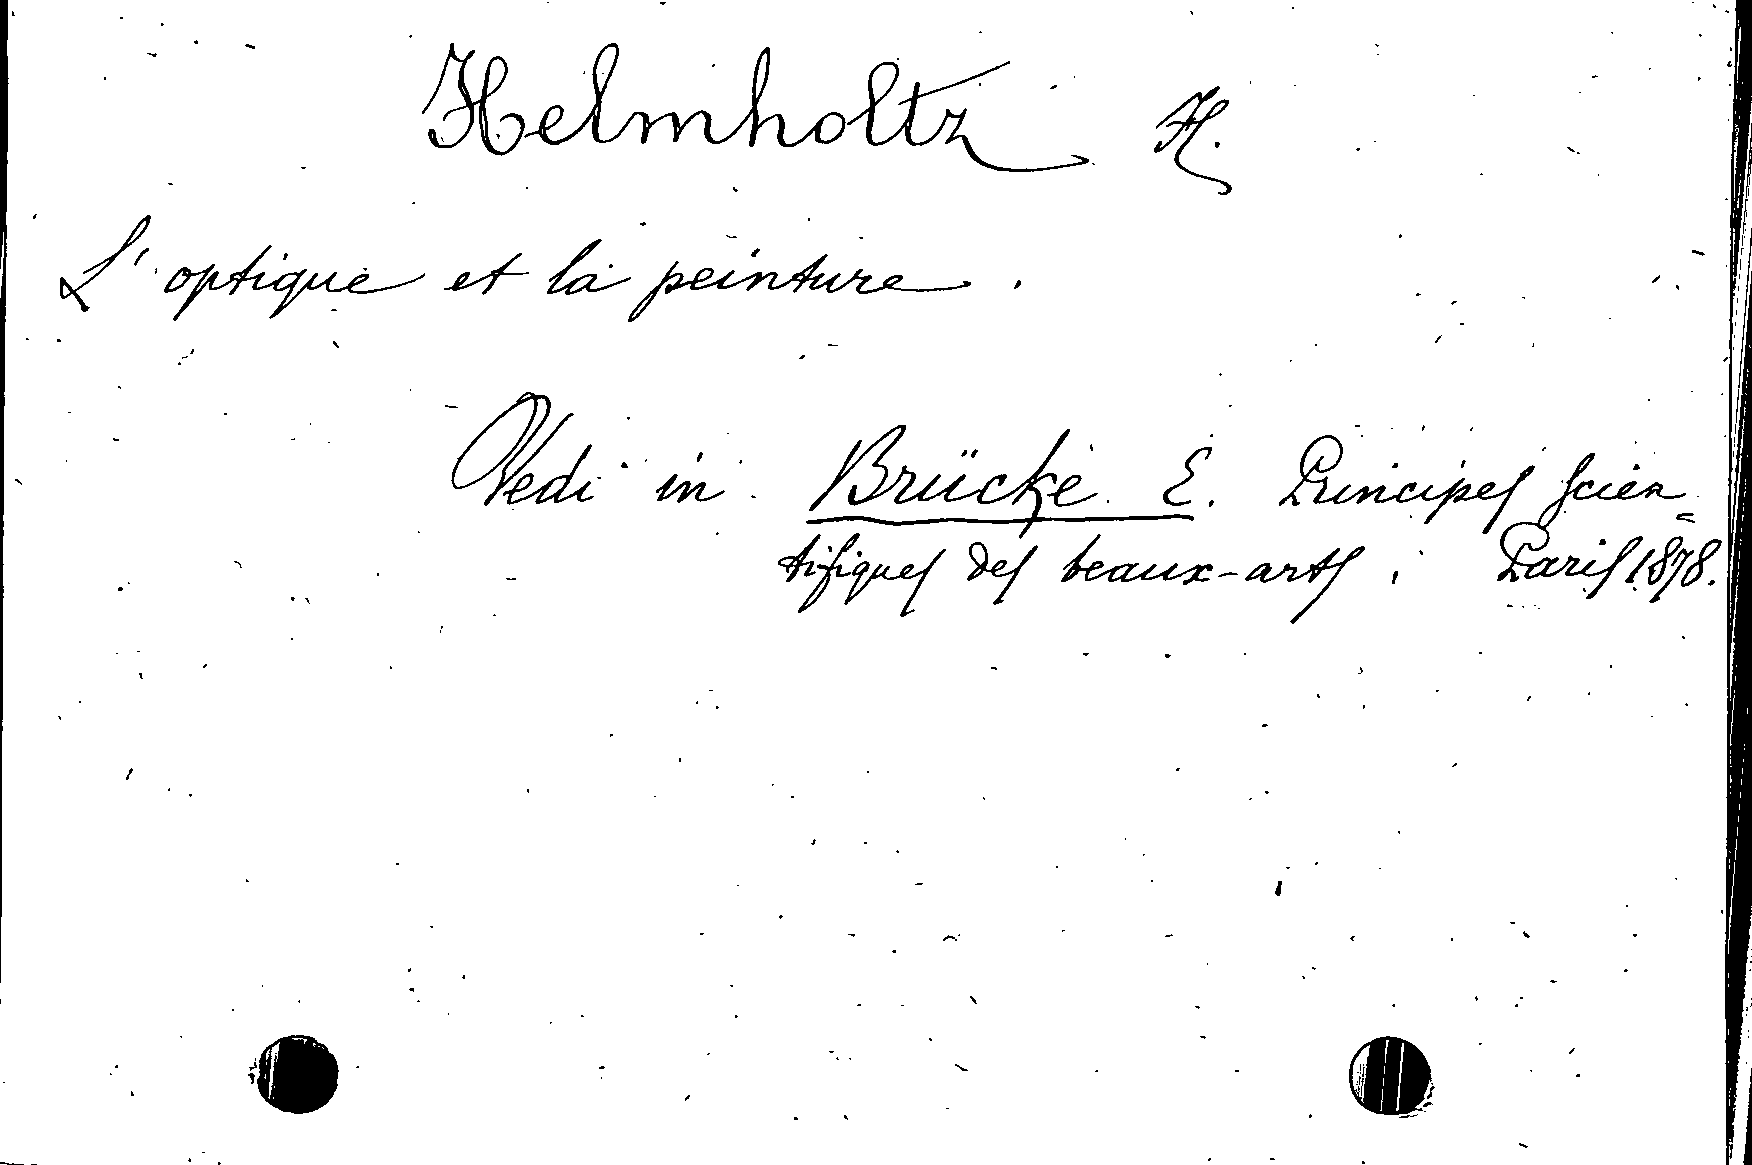 Helmholtz H.
L'optique et la peinture.
Vedi in Brücke E. Principes scien=
tifiques des beaux-arts. Paris 1878.